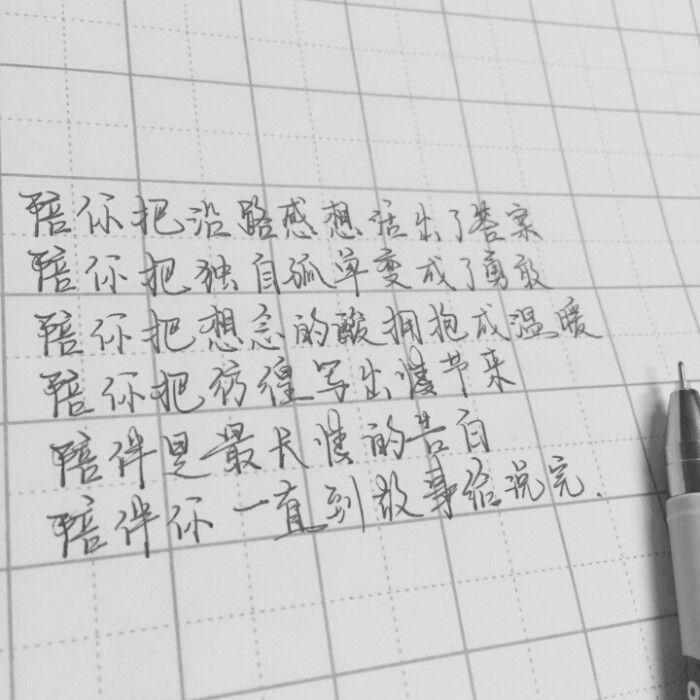 陪你把沿路感想活出了答案
陪你把独自孤单变成了勇敢
陪你把想念的酸拥抱成温暖
陪你把彷徨写出情节来
陪伴是最长情的告白
陪伴你一直到故事给说完.